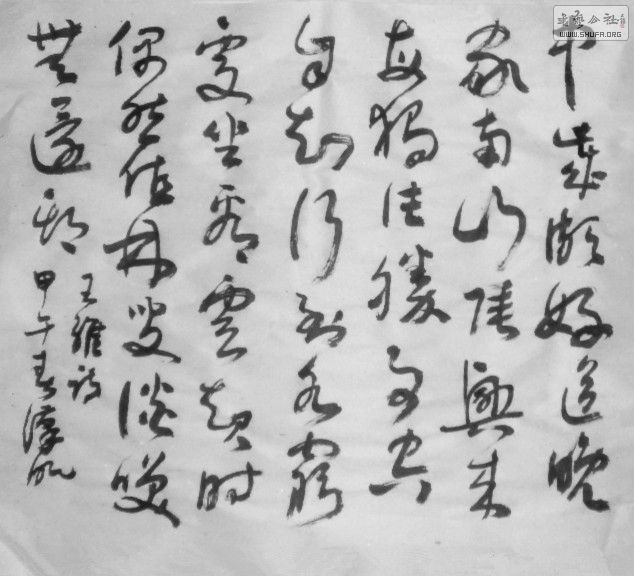 中歲頗好道晚
家南山陲興来
每獨往勝事空
自知行到水窮
處坐看雲起时
偶然值林叟談笑
無還期
王維詩
甲午春
书艺公社
WWW.SHUFA.ORG